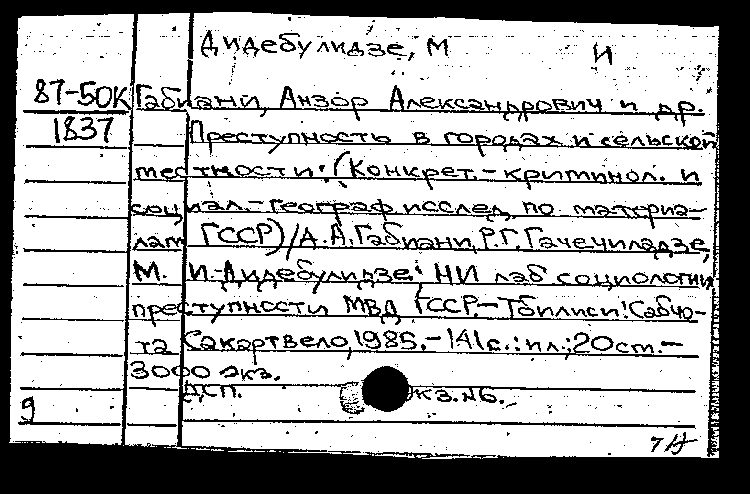 Дидебулидзе, М И
87-50К Габиани, Анзор Александрович и др.
1837 Преступность в городах и сельской
местности: (Конкрет.-криминол. и
социал.-географ исслед. по материа-
лам ГССР)/А.А.Габиани, Р.Г.Гачечиладзе,
М. И.Дидебулидзе; НИ лаб социологии
преступности МВД ГССР.-Тбилиси: Сабчо-
та Сакартвело, 1985.-141с.: ил.; 20см.-
3000 экз.
ДСП. кз.№6.
9